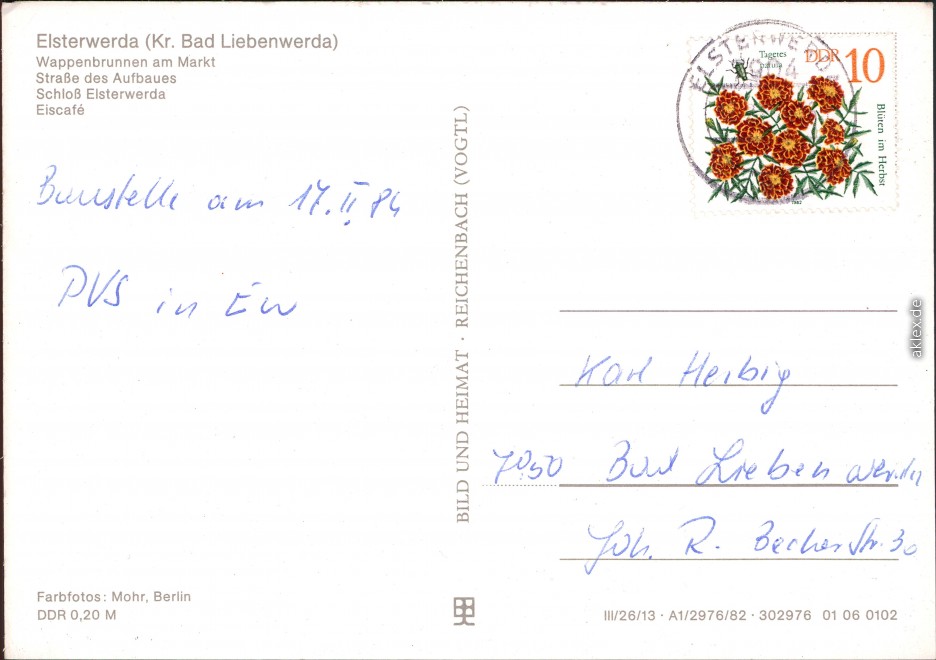 Elsterwerda (Kr. Bad Liebenwerda)
Wappenbrunnen am Markt
Straße des Aufbaues
Schloß Elsterwerda
Eiscafé
Baustelle am 17.II.84
PVS in Ew
BILD UND HEIMAT · REICHENBACH (VOGTL)
ELSTERWERD
Tagetes
patula
DDR 10
Blüten im Herbst
1982
Karl Herbig
7950 Bad Liebenwerda
Joh. R. Becher Str. 30
aklex.de
Farbfotos: Mohr, Berlin
DDR 0,20 M
III/26/13 · A1/2976/82 · 302976 01 06 0102